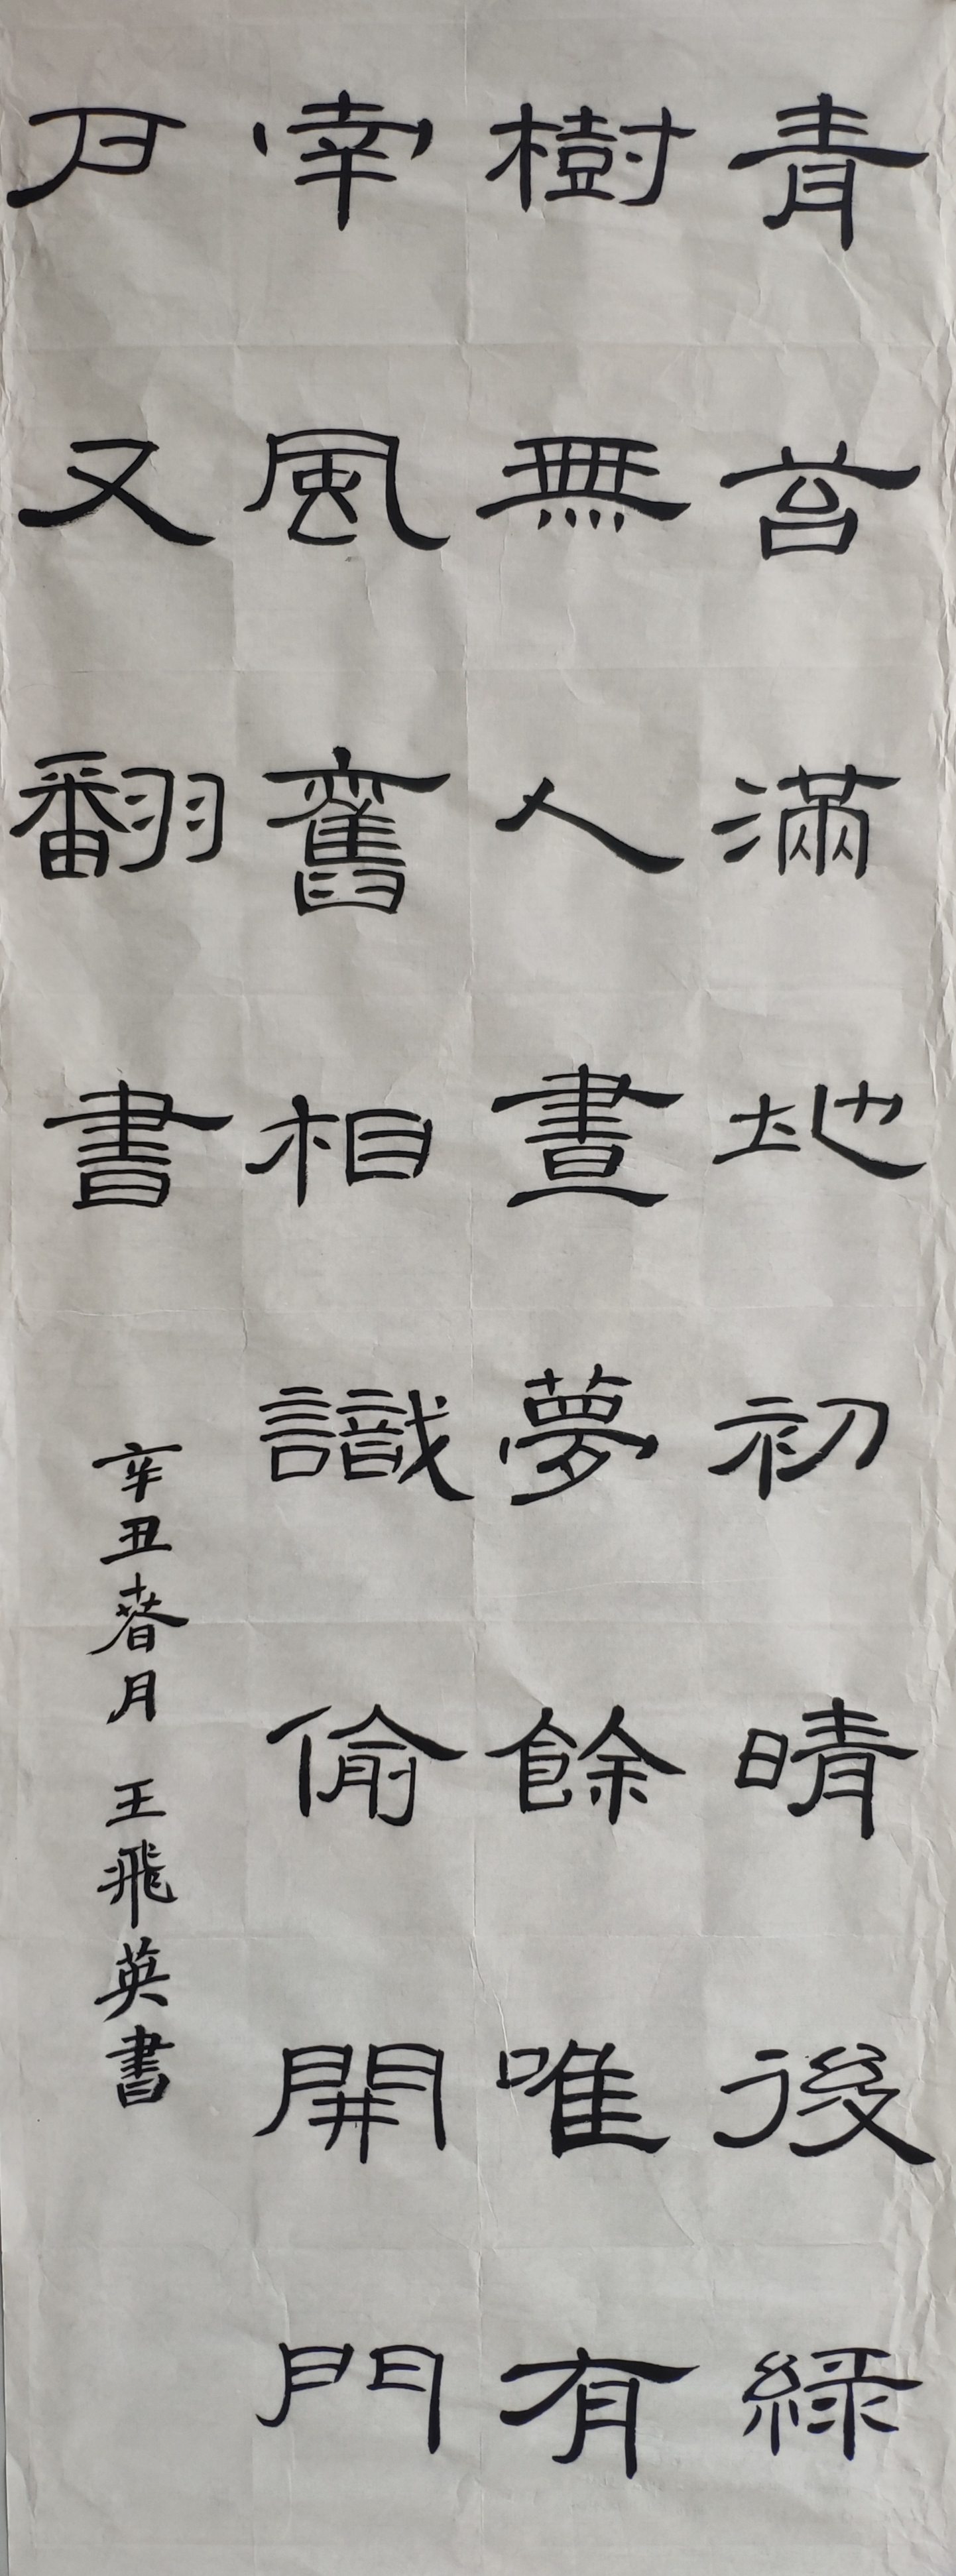 青苔滿地初晴後綠
樹無人晝夢餘唯有
南風舊相識偷開門
戶又翻書
辛丑春月 王飛英書